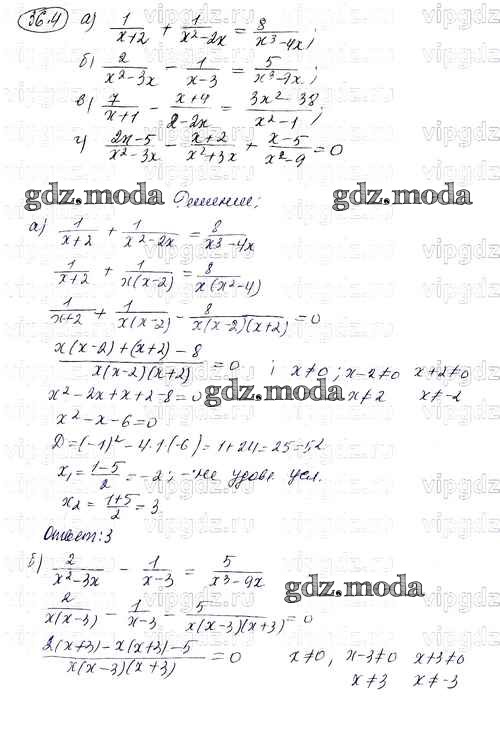 36.4 а) 1/(x+2) + 1/(x²-2x) = 8/(x³-4x);
б) 2/(x²-3x) - 1/(x-3) = 5/(x³-9x);
в) 7/(x+1) - (x+4)/(2-2x) = (3x²-38)/(x²-1);
г) (2x-5)/(x²-3x) - (x+2)/(x²+3x) + (x-5)/(x²-9) = 0
gdz.moda gdz.moda
Решение:
а) 1/(x+2) + 1/(x²-2x) = 8/(x³-4x)
1/(x+2) + 1/(x(x-2)) = 8/(x(x²-4))
1/(x+2) + 1/(x(x-2)) - 8/(x(x-2)(x+2)) = 0
(x(x-2)+(x+2)-8)/(x(x-2)(x+2)) = 0 ; x≠0; x-2≠0 x+2≠0
x²-2x+x+2-8=0 gdz.moda x≠2 x≠-2
x²-x-6=0
D=(-1)²-4·1(-6)=1+24=25=5²
x₁=(1-5)/2=-2; -не удовл. усл.
x₂=(1+5)/2=3
Ответ: 3
б) 2/(x²-3x) - 1/(x-3) = 5/(x³-9x)
gdz.moda
2/(x(x-3)) - 1/(x-3) - 5/(x(x-3)(x+3)) = 0
(2(x+3)-x(x+3)-5)/(x(x-3)(x+3)) = 0 x≠0, x-3≠0, x+3≠0
x≠3 x≠-3